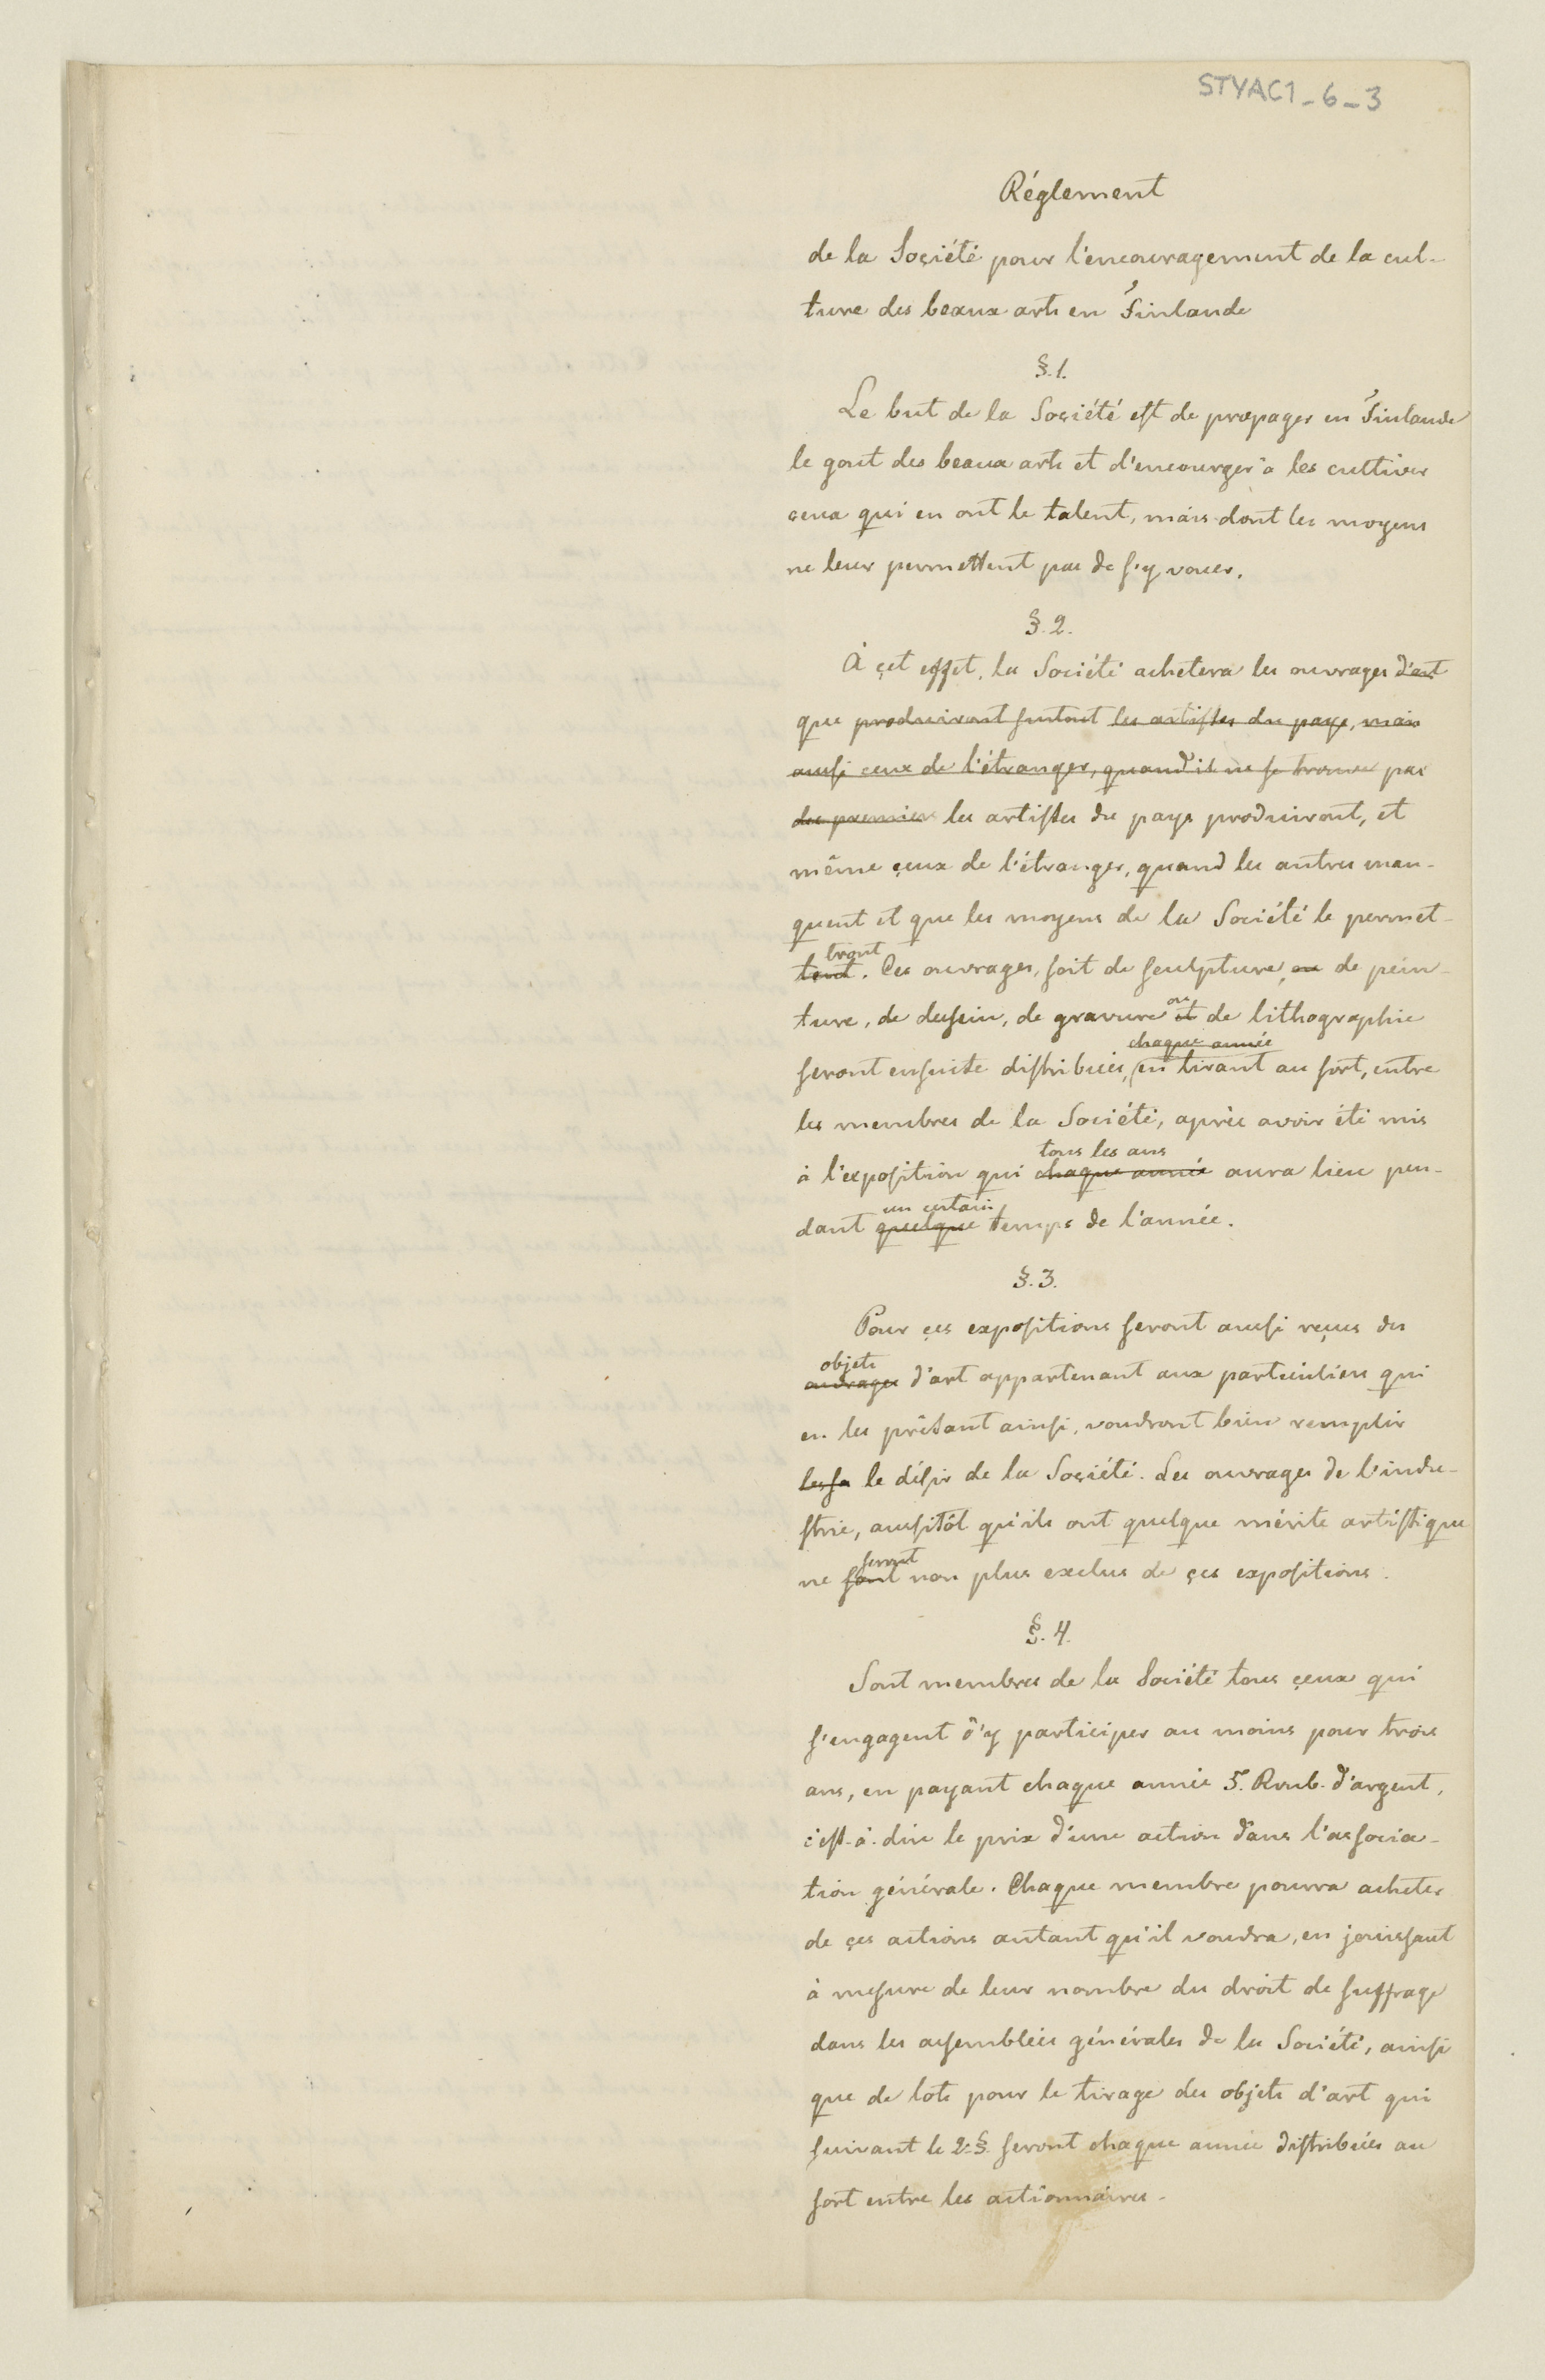 STYAC1_6_3
Réglement
de la Soçiété pour l'encouragement de la cul-
ture des beaux arts en Finlande
§.1.
Le but de la Soçiété est de propager en Finlande
le gout des beaux arts et d'encourger à les cultiver
ceux qui en ont le talent, mais dont les moyens
ne leur permettent pas de s'y vouer.
§.2.
À çet effet, la Société achetera les ouvrages d'art
que produiront surtout les artistes du pays, mais
aussi ceux de l'étranger, quand il ne se trouve pas
des premiers les artistes du pays produiront, et
même çeux de l'étranger, quand les autres man-
quent et que les moyens de la Société le permet-
tront
tent. Ces ouvrages, soit de sculpture, ou de pein-
ou
ture, de dessin, de gravure et de lithographie
chaque année
seront ensuite distribués, en tirant au sort, entre
les membres de la Société, après avoir été mis
tous les ans
à l'exposition qui chaque année aura lieu pen-
un certain
dant quelque temps de l'année.
§.3.
Pour çes expositions seront aussi reçus des
objets
ouvrages d'art appartenant aux particuliers qui
en les prêtant ainsi, voudront bien remplir
les sa le désir de la Soçiété. Les ouvrages de l'indu-
strie, aussitôt qu'ils ont quelque mérite artistique
seront
ne sont non plus exclus de çes expositions.
§.4.
Sont membres de la Société tous çeux qui
s'engagent d'y participer au moins pour trois
ans, en payant chaque année 5. Roub. d'argent,
c'est-à-dire le prix d'une action dans l'associa-
tion générale. Chaque membre pourra acheter
de çes actions autant qu'il voudra, en jouissant
à mesure de leur nombre du droit de suffrage
dans les assemblées générales de la Société, ainsi
que de lots pour le tirage des objets d'art qui
suivant le 2.§. seront chaque année distribués au
sort entre les actionnaires.